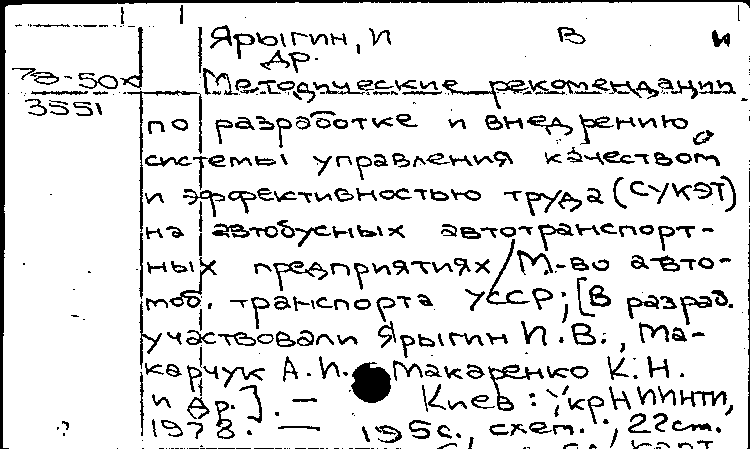 Ярыгин, И В и
др.
78-50х Методические рекомендации
3551
по разработке и внедрению
системы управления качеством
и эффективностью труда (СУКЭТ)
на автобусных автотранспорт-
ных предприятиях / М-во авто-
моб. транспорта УССР; [В разраб.
участвовали Ярыгин И.В., Ма-
карчук А.И. Макаренко К.Н.
и др.]. — Киев: УкрНИИНТИ,
1978. — 195с., схем.; 22см.